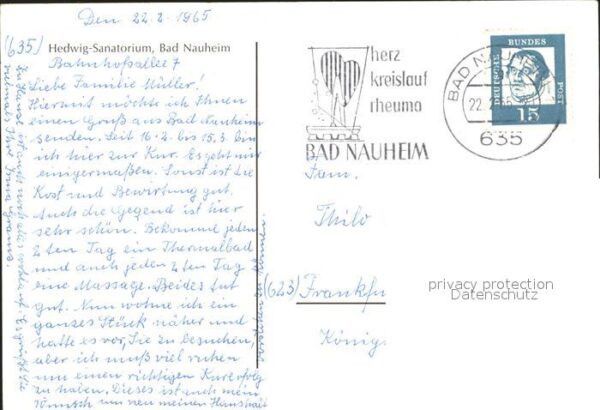 Den 22.2.1965
(635) Hedwig-Sanatorium, Bad Nauheim
Bahnhofsallee 7
Liebe Familie Müller!
Hiermit möchte ich Ihnen
einen Gruß aus Bad Nauheim
senden. Seit 16.2. bis 15.3. bin
ich hier zur Kur. Es geht mir
einigermaßen. Sonst ist die
Kost und Bewirtung gut.
Auch die Gegend ist hier
sehr schön. Bekomme jeden
2ten Tag ein Thermalbad
und auch jeden 2ten Tag
eine Massage. Beides tut
gut. Nun wohne ich ein
ganzes Stück näher und
hatte es vor, Sie zu besuchen,
aber ich muß viel ruhen
um einen richtigen Kurerfolg
zu haben. Dieses ist auch mein
Wunsch um neu meinen Haushalt
zu Hause ist auch noch alles Es grüßt Sie
nochmals Ihre Irma
herz
kreislauf
rheuma
BAD NAUHEIM
BAD NAUHEIM
22.2.65
635
DEUTSCHE BUNDESPOST
15
Fam.
Thilo
(623) Frankfu
König
privacy protection
Datenschutz